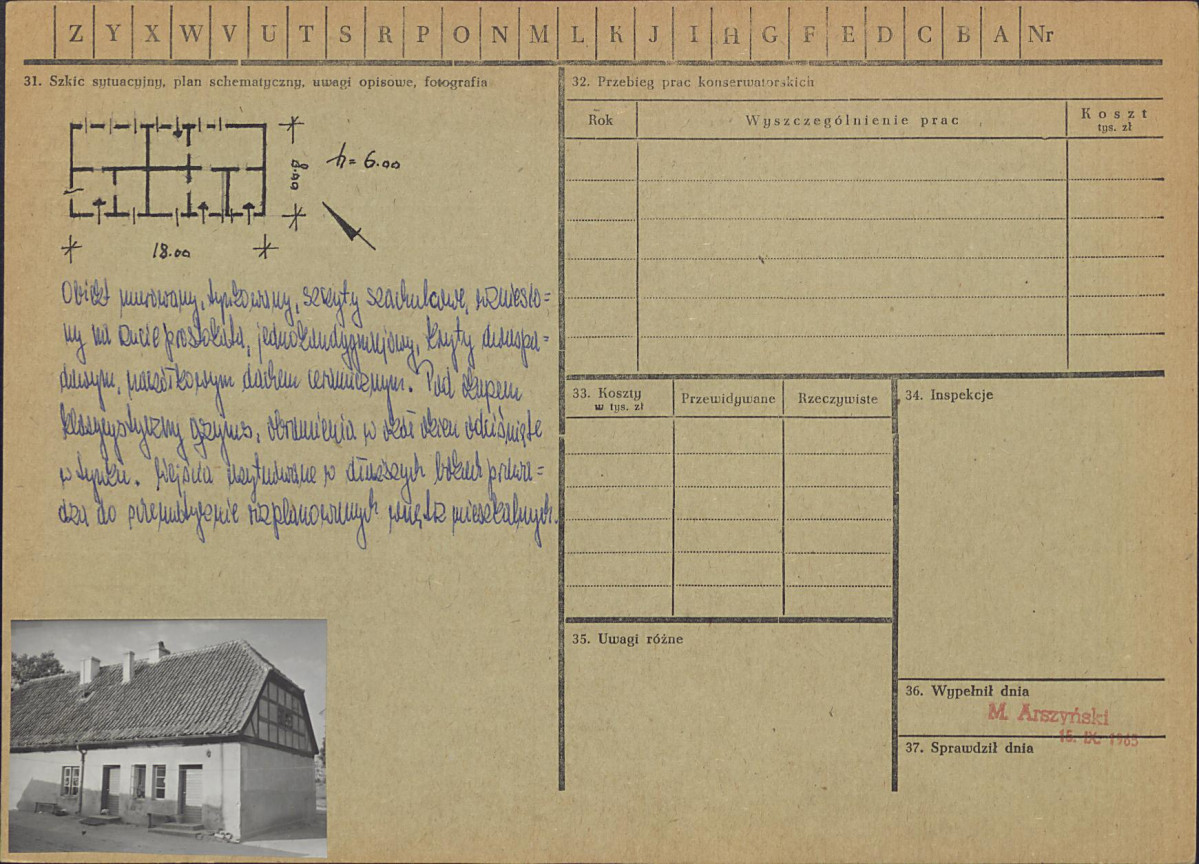 Z Y X W V U T S R P O N M L K J I H G F E D C B A Nr
31. Szkic sytuacyjny, plan schematyczny, uwagi opisowe, fotografia
8.00
h = 6.00
18.00
Obiekt murowany, tynkowany, szczyty szachulcowe, wzniesio=
ny na rzucie prostokąta, jednokondygnacyjny, kryty dwuspa=
dowym, naczółkowym dachem ceramicznym. Pod okapem
klasycystyczny gzyms, obramienia w okół okien odciśnięte
w tynku. Wejścia usytuowane w dłuższych bokach prowa=
dzą do schematycznie rozplanowanych wnętrz mieszkalnych.
32. Przebieg prac konserwatorskich
Rok
Wyszczególnienie prac
Koszt
tys. zł
33. Koszty
w tys. zł
Przewidywane
Rzeczywiste
34. Inspekcje
35. Uwagi różne
36. Wypełnił dnia
M. Arszyński
15. IX. 1965
37. Sprawdził dnia